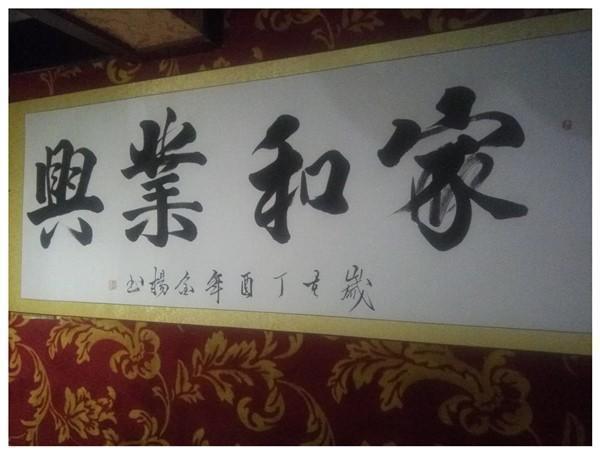 家和業興
歲在丁酉年金楊书